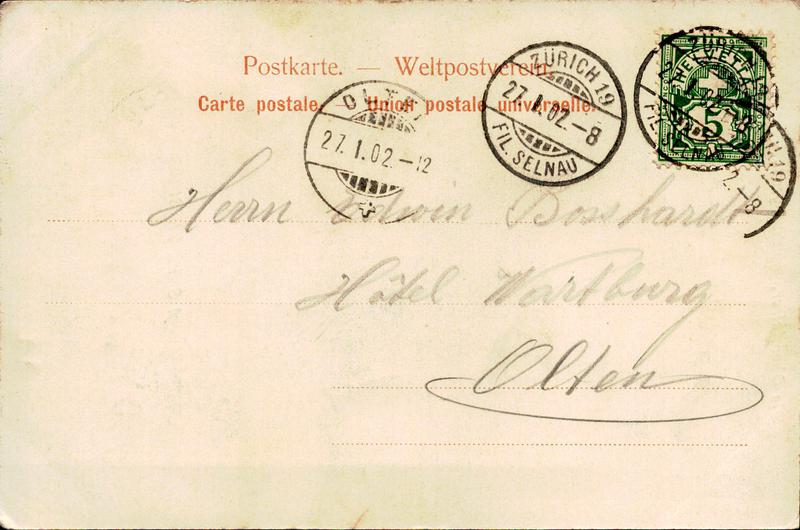 Postkarte. — Weltpostverein.
Carte postale. — Union postale universelle.
OLTEN
27.I.02.–12
ZÜRICH 19
27.I.02.–8
FIL. SELNAU
HELVETIA
5
Herrn Edwin Bosshardt
Hôtel Wartburg
Olten